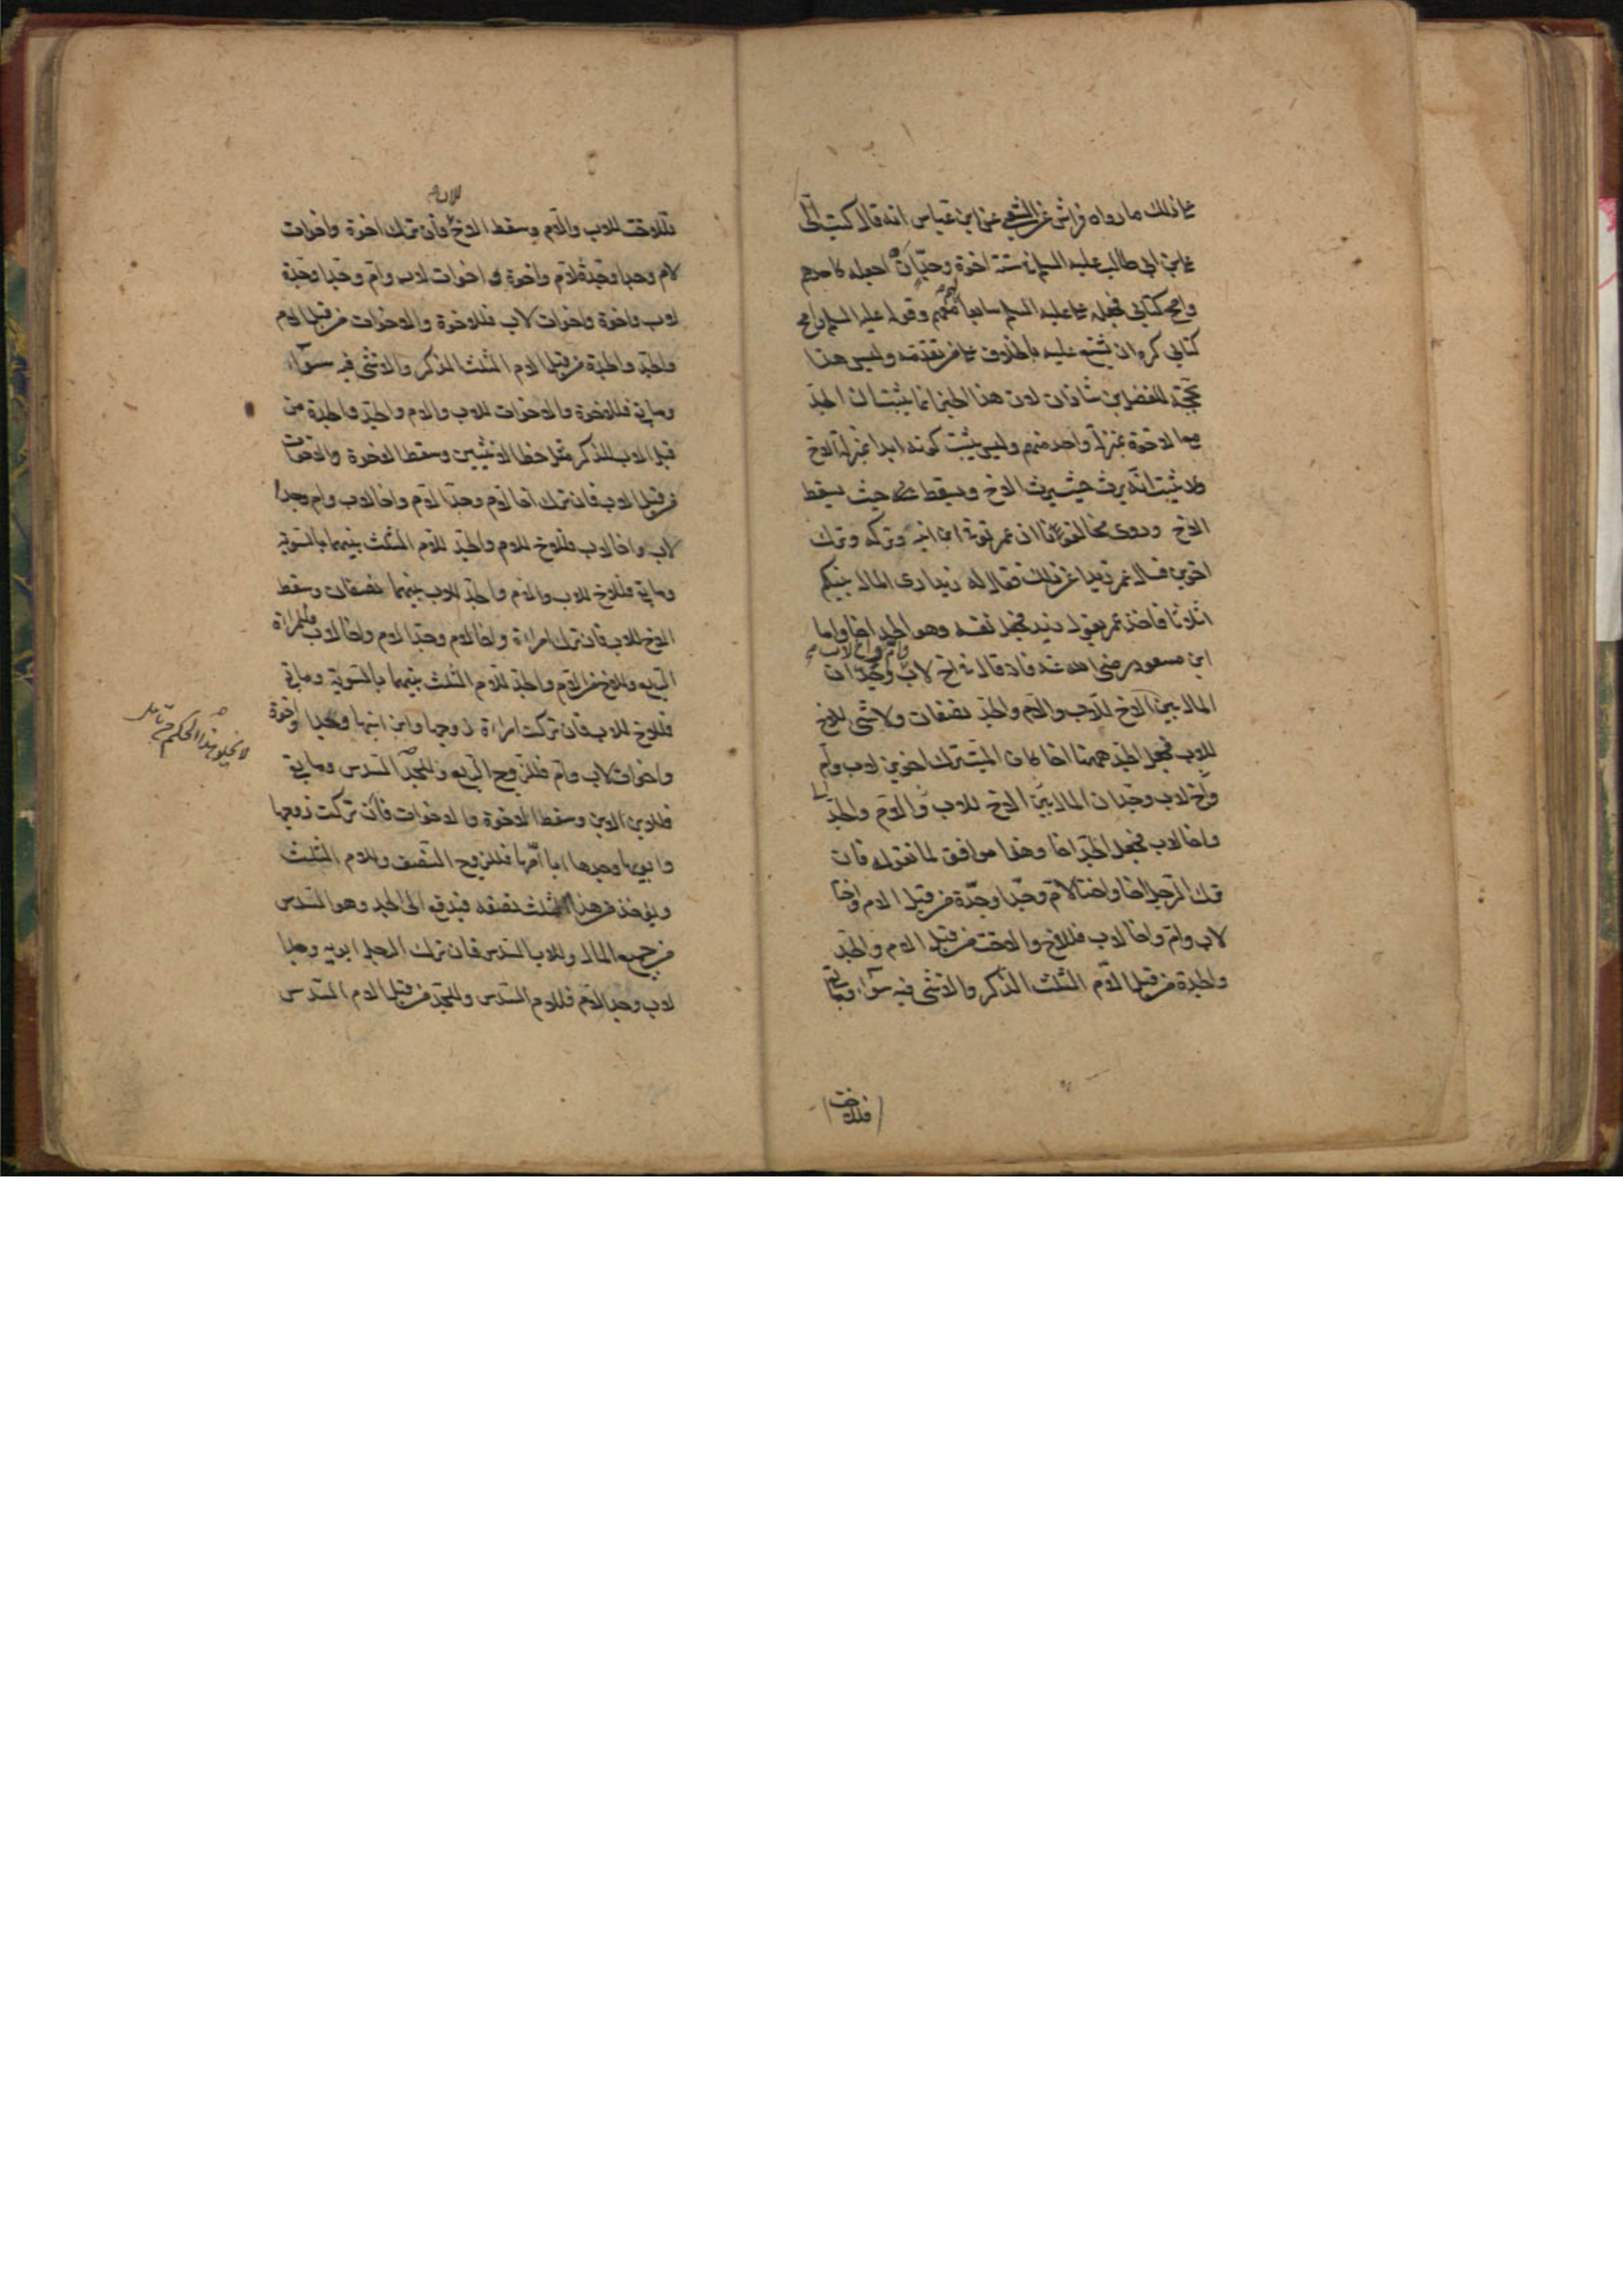 على ذلك ما رواه فراس عن الشعبي عن ابن عباس انه قال كتب الي
علي بن ابي طالب عليه السلم في ستة اخوة وجد ان اجعله كاحدهم
وامح كتابي فجعله علي عليه السلم سابعا معهم وقوله عليه السلم وامح
كتابي كره ان يشنع عليه بالخلاف على من تقدمه وليس هذا
بحجة للفضل بن شاذان لان هذا الخبر انما يثبت ان الجد
مع الاخوة بمنزلة واحد منهم وليس يثبت كونه ابدا بمنزلة الاخ
ولا يثبت انه يرث حيث يرث الاخ ويسقط حيث يسقط
الاخ وروى مخالفونا ان عمر توفي ابن ابنه وتركه وترك
اخوين فسال عمر زيدا عن ذلك فقال له زيد ارى المال بينكم
اثلاثا فاخذ عمر بقول زيد فجعل نفسه وهو الجد اخا واما
ابن مسعود رضي الله عنه فانه قال في اخ لاب وام واخ لاب وجد ان
المال بين الاخ للاب والام والجد نصفان ولا شي للاخ
للاب فجعل الجد ههنا اخا كان الميت ترك اخوين لاب وام
واخ لاب وجد ان المال بين الاخ للاب والام والجد
واخا لاب فجعل الجد اخا وهذا موافق لما نقوله فان
ترك الرجل اخا واختا لام وجدا وجدة من قبل الام واختا
لاب وام واخا لاب فللاخ والاخت من قبل الام والجد
والجدة من قبل الام الثلث الذكر والانثى فيه سواء وما بقي
فللاخت
فللاخت للاب والام وسقط الاخ للاب فان ترك اخوة واخوات
لام وجدا وجدة لام واخوة واخوات لاب وام وجدا وجدة
لاب واخوة واخوات لاب فللاخوة والاخوات من قبل الام
والجد والجدة من قبل الام الثلث الذكر والانثى فيه سواء
وما بقي فللاخوة والاخوات للاب والام والجد والجدة من
قبل الاب للذكر مثل حظ الانثيين وسقط الاخوة والاخوات
من قبل الاب فان ترك اخا لام وجدا لام واخا لاب وام وجدا
لاب واخا لاب فللاخ للام والجد للام الثلث بينهما بالسوية
وما بقي فللاخ للاب والام والجد للاب بينهما نصفان وسقط
الاخ للاب فان ترك امراة واخا لام وجدا لام واخا لاب فللمراة
الربع وللاخ من الام والجد للام الثلث بينهما بالسوية وما بقي
فللاخ للاب فان تركت امراة زوجها وابن ابنها وجدا واخوة
واخوات لاب وام فللزوج الربع وللجد السدس وما بقي
فلابن الابن وسقط الاخوة والاخوات فان تركت زوجها
وابويها وجدها ابا امها فللزوج النصف وللام الثلث
ويؤخذ من هذا الثلث نصفه فيدفع الى الجد وهو السدس
من جميع المال وللاب السدس فان ترك الرجل ابويه وجدا
لاب وجدا لام فللام السدس وللجد من قبل الام السدس
لا يخلو هذا الحكم